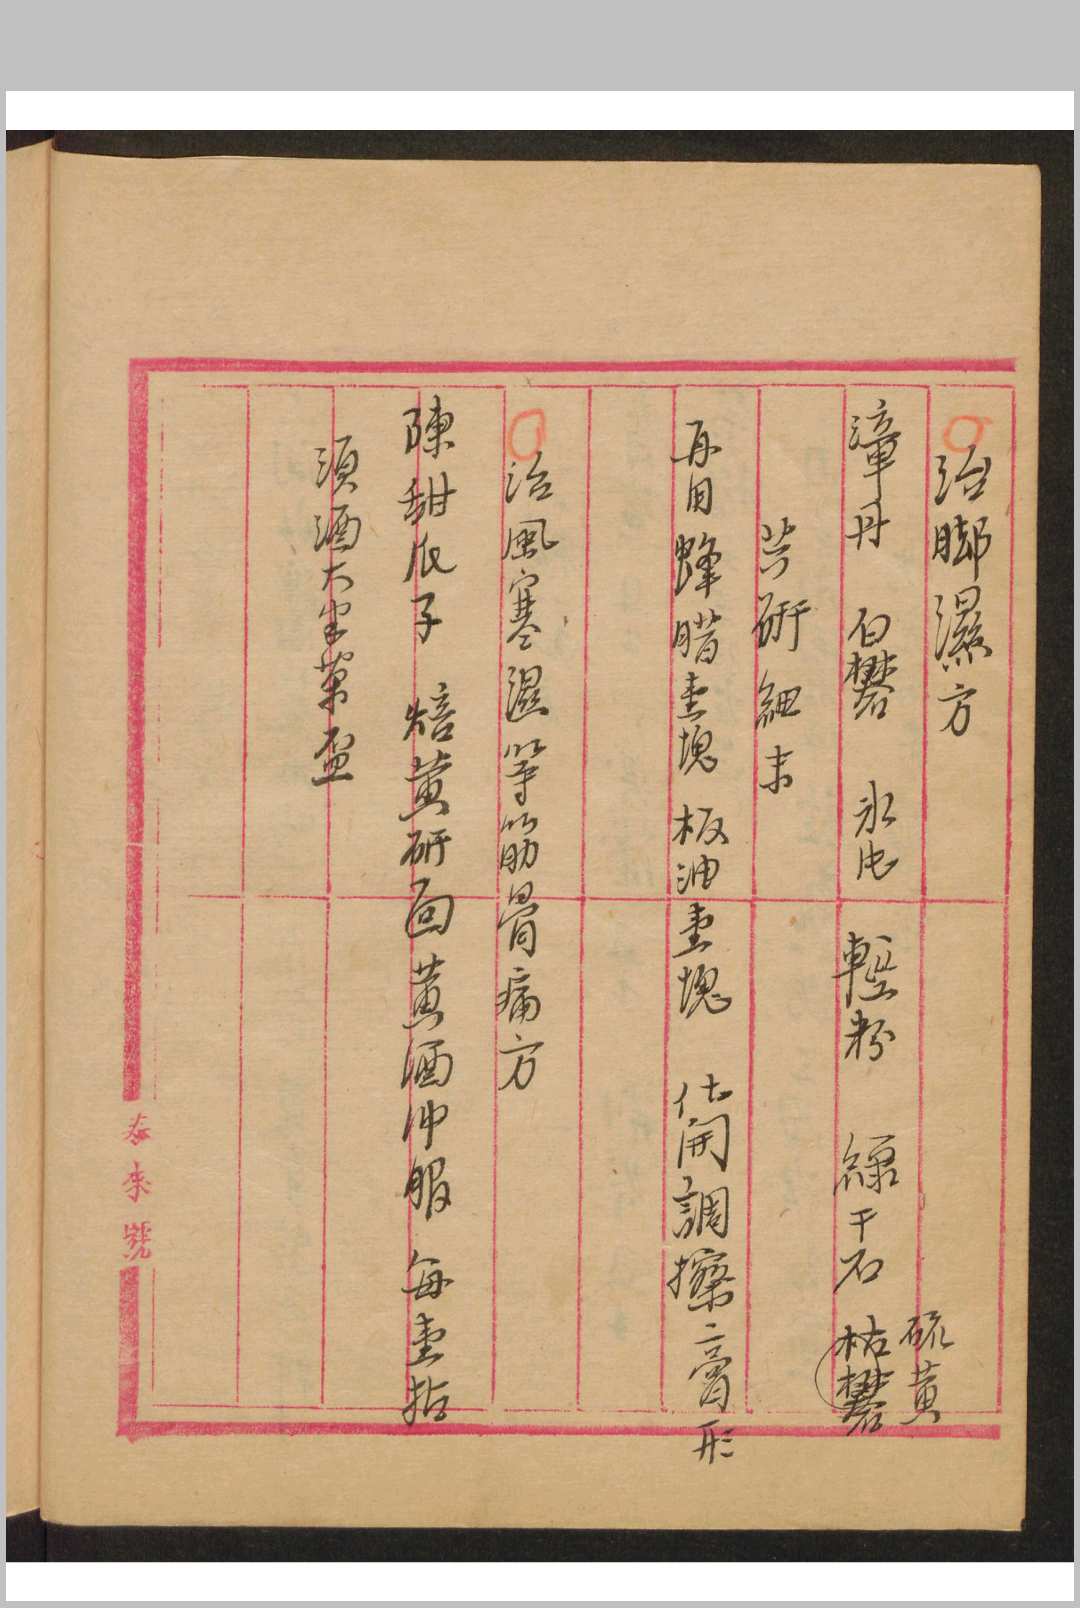 治脚濕方
硫黄
漳丹 白礬 水 輕粉 綠干石 枯礬
共研細末
再用蜂腊壹塊 板油壹塊 化開調擦膏形
治風寒濕等筋骨痛方
陳甜瓜子 焙黄研面 黄酒冲服 每壹
須酒大半 盃
泰來號